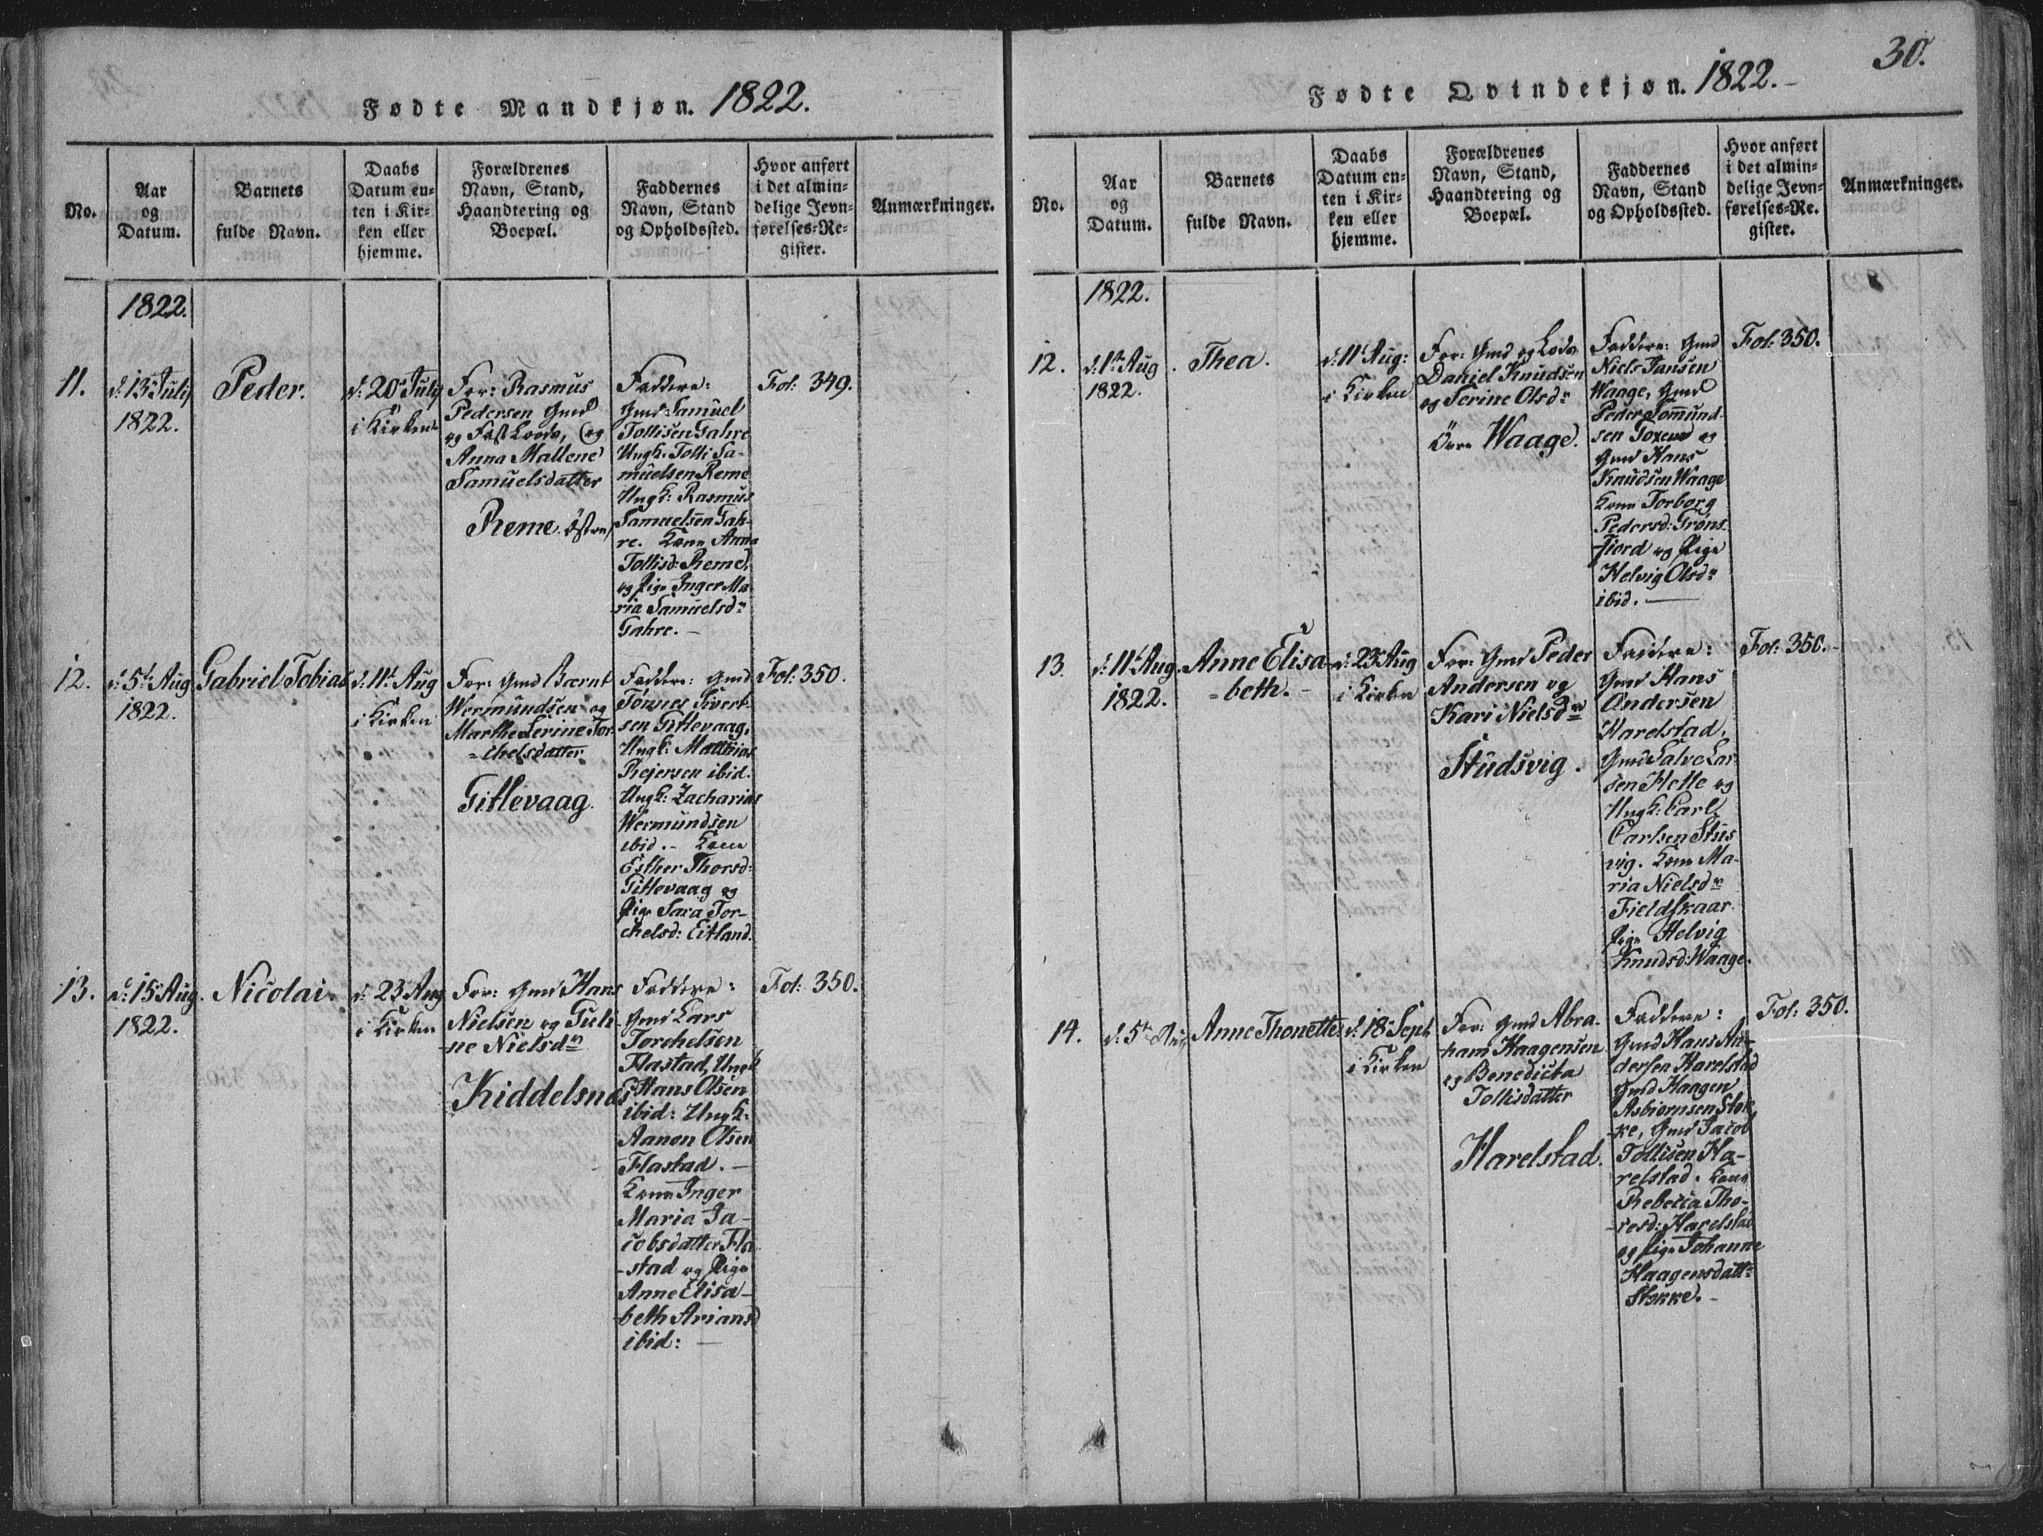 Fødte Mandkjøn. 1822.
No.
Aar
og
Datum.
Barnets
fulde Navn.
Daabs
Datum en-
ten i Kir-
ken eller
hjemme.
Forældrenes
Navn, Stand,
Haandtering og
Boepæl.
Faddernes
Navn, Stand
og Opholdssted.
Hvor anført
i det almin-
delige Jevn-
førelses-Re-
gister.
Anmærkninger.
1822.
11.
d: 13 July
1822.
Peder.
d: 20 July
i Kirken
For: Rasmus
Pedersen Gmd
og Fast Lods, og
Anna Mallene
Samuelsdatter
Reme Østre
Faddere:
Gmd Samuel
Tollisen Jahre
Ungk: Tolli Sa-
muelsen Reme
Ungk: Rasmus
Samuelsen Jah-
re. Kone Anna
Tollisd: Reme,
og Pige Inger Ma-
ria Samuelsdr
Jahre. –
Fol: 349.
12.
d: 5t Aug
1822.
Gabriel Tobias
d: 11t Aug
i Kirken
For: Gmd Bærnt
Wermundsen og
Marthe Serine Tor-
-chelsdatter
Gitlevaag.
Faddere: Gmd
Tønnes Sivert-
sen Gitlevaag,
Ungk: Matthias
Rejersen ibid.
Ungk: Zacharias
Wermundsen
ibid. – Kone
Esther Thorsd:
Gitlevaag og
Pige Sara Tor-
chelsd: Eitland.
Fol: 350.
13.
d: 15 Aug.
1822.
Nicolai.
d: 23 Aug
i Kirken
For: Gmd Hans
Nielsen og
-ne Nielsdr
Kiddelsnæs
Faddere:
Gmd Lars
Torchelsen
Flastad, Ungk
Hans Olsen
ibid: Ungk:
Aanon Olsen
Flastad. –
Kone Inger
Maria Ja-
cobsdatter Fla-
-stad og Pige
Anne Elisa-
beth Ariansd
ibid: –
Fol: 350.
30.
Fødte Qvindekjøn. 1822. –
No.
Aar
og
Datum.
Barnets
fulde Navn.
Daabs
Datum en-
ten i Kir-
ken eller
hjemme.
Forældrenes
Navn, Stand,
Haandtering og
Boepæl.
Faddernes
Navn, Stand
og Opholdssted.
Hvor anført
i det almin-
delige Jevn-
førelses-Re-
gister.
Anmærkninger.
1822.
12.
d: 1t Aug
1822.
Thea.
d: 11t Aug:
i Kirken
For: Gmd og Lods
Daniel Knudsen
og Serine Olsdr
Øvre Waage.
Faddere: Gmd
Niels Jansen
Waage, Gmd
Peder Tommund-
sen og
Gmd Hans
Knudsen Waage
Kone Torborg
Pedersd: Grøns-
fiord og Pige
Helvig Olsdr
ibid. –
Fol: 350.
13.
d: 11t Aug.
1822.
Anne Elisa-
-beth. –
d: 23 Aug
i Kirken
For: Gmd Peder
Andersen og
Kari Nielsdr
Studsvig.
Faddere:
Gmd Hans
Andersen
Harelstad,
Gmd Salve Lar-
sen Hette og
Ungk: Carl
Carlsen Stus-
vig. Kone Ma-
ria Nielsdr
Fieldskaar.
Pige Helvig
Knudsd: Waage.
Fol: 350. –
14.
d: 5t
Anne Thonette.
d: 18 Sept
i Kirken
For: Gmd Abra-
ham Haagensen
og Benedicta
Tollisdatter
Harelstad.
Faddere:
Gmd Hans An-
dersen Harelstad
Gmd Haagen
Asbiørnsen Stok-
ke, Gmd Jacob
Tollisen Ha-
relstad. Kone
Rebecca Tho-
resd: Harelstad,
og Pige Johanne
Haagensdattr
Stokke. –
Fol: 350.